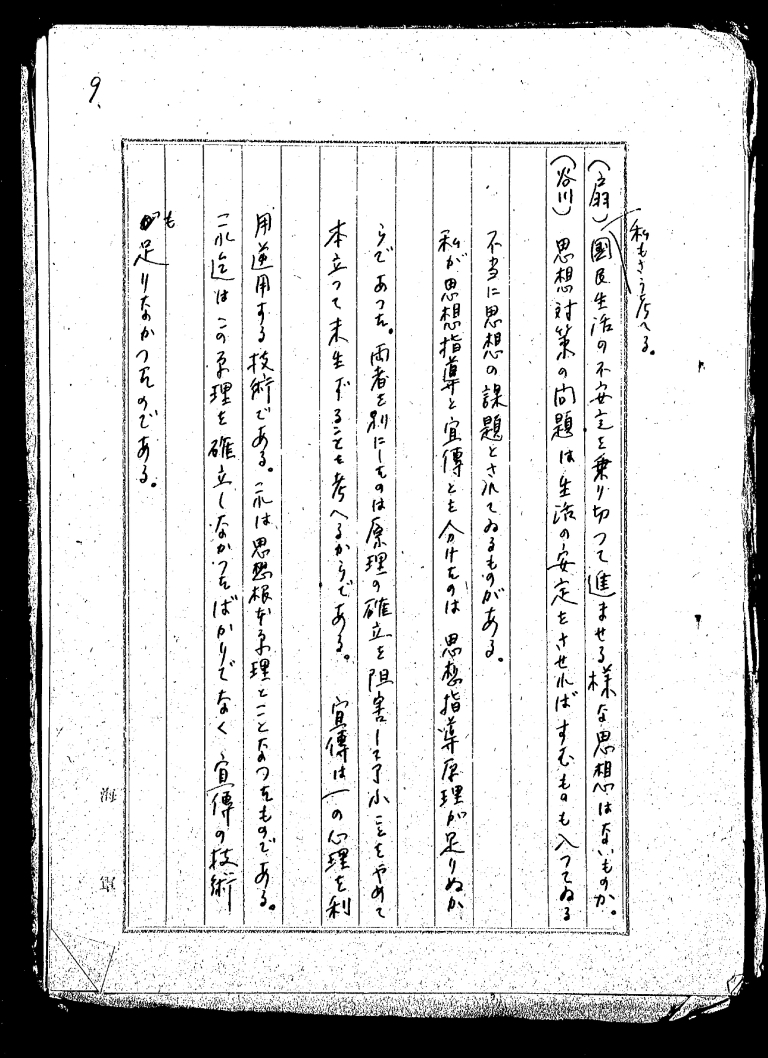 9.
私もさう考へる。
(扇) 國民生活の不安定を乗り切つて進ませる様な思想はないものか。
(谷川) 思想対策の問題は生活の安定をさせればすむものも入つてゐる
不当に思想の課題とされてゐるものがある。
私が思想指導と宣傳とを分けたのは 思想指導原理が足りぬか
らであつた。両者を別にしたのは原理の確立を阻害して了ふことをやめて
本立つて末生ずることを考へるからである。 宣傳は一の心理を利
用運用する技術である。これは思想根本原理とことなつたものである。
これ迄はこの原理を確立しなかつたばかりでなく 宣傳の技術
も
足りなかつたのである。
海軍